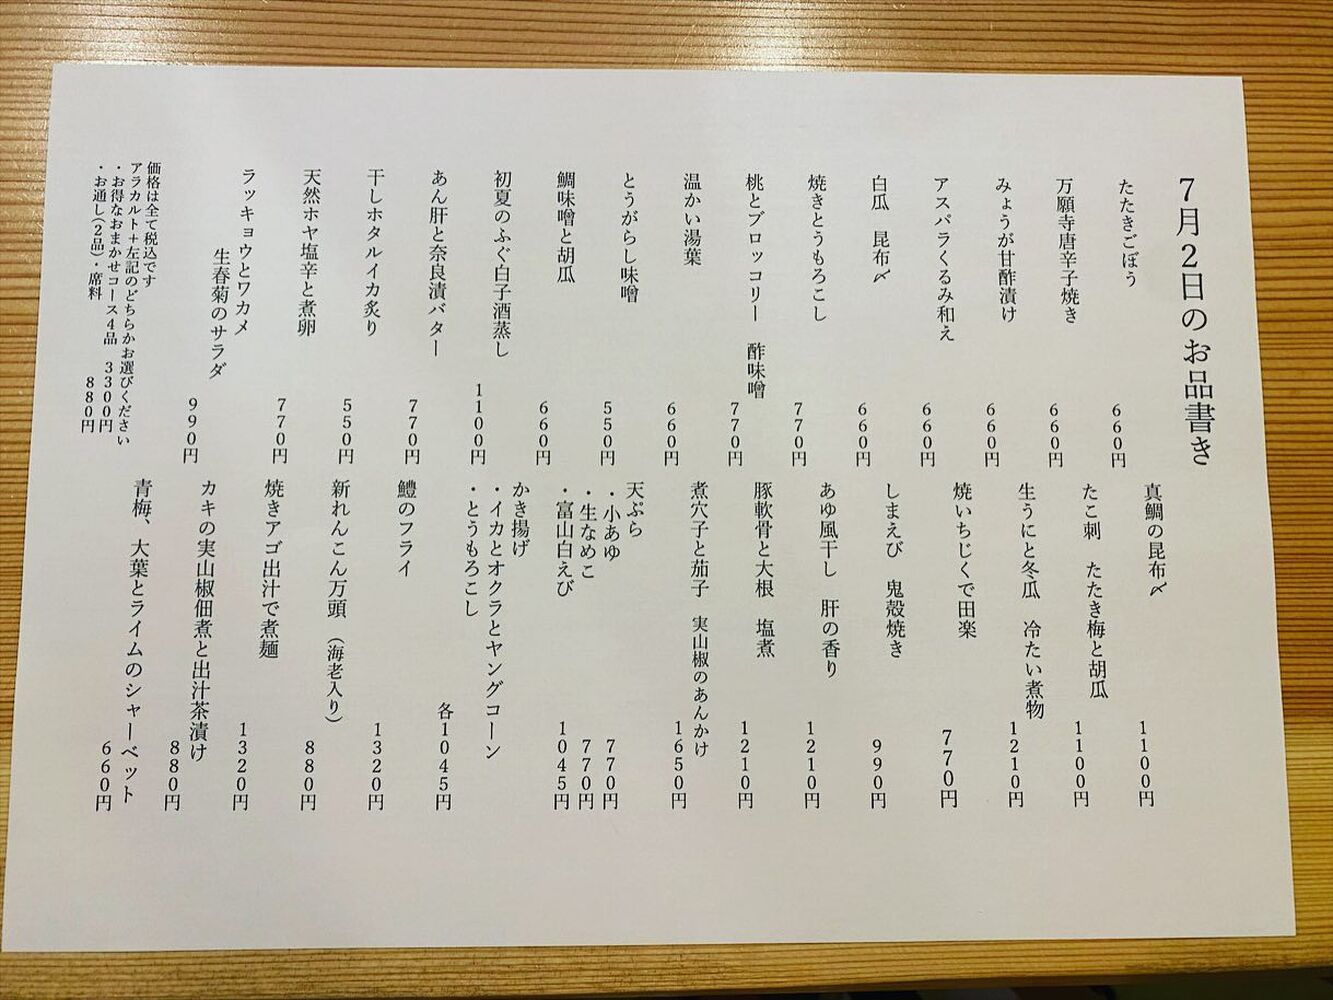 7月2日のお品書き
たたきごぼう
660円
万願寺唐辛子焼き
660円
みょうが甘酢漬け
660円
アスパラくるみ和え
660円
白瓜　昆布〆
660円
焼きとうもろこし
770円
桃とブロッコリー　酢味噌
770円
温かい湯葉
660円
とうがらし味噌
550円
鯛味噌と胡瓜
660円
初夏のふぐ白子酒蒸し
1100円
あん肝と奈良漬バター
770円
干しホタルイカ炙り
550円
天然ホヤ塩辛と煮卵
770円
ラッキョウとワカメ
生春菊のサラダ
990円
価格は全て税込です
アラカルト＋左記のどちらかお選びください
・お得なおまかせコース4品　3300円
・お通し(2品)・席料　880円
真鯛の昆布〆
1100円
たこ刺　たたき梅と胡瓜
1100円
生うにと冬瓜　冷たい煮物
1210円
焼いちじくで田楽
770円
しまえび　鬼殻焼き
990円
あゆ風干し　肝の香り
1210円
豚軟骨と大根　塩煮
1210円
煮穴子と茄子　実山椒のあんかけ
1650円
天ぷら
・小あゆ　770円
・生なめこ　770円
・富山白えび　1045円
かき揚げ
・イカとオクラとヤングコーン
・とうもろこし
各1045円
鱧のフライ
1320円
新れんこん万頭　（海老入り）
880円
焼きアゴ出汁で煮麺
1320円
カキの実山椒佃煮と出汁茶漬け
880円
青梅、大葉とライムのシャーベット
660円